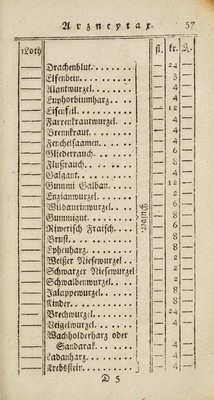 Arzneytax. 57
1Loth fl. kr. ₰.
Drachenblut. — 24 —
Elfenbein. — 3 —
Alantwurzel. — 4 —
Euphorbiumharz. — 4 —
Eisenfeil. — 12 —
Farrenkrautwurzel. — 4 —
Brennkraut. — 4 —
Fenchelsaamen. — 4 —
Gliederrauch. — 8 —
Flußrauch. — 8 —
Galgant. — 4 —
Gummi Galban. — 12 —
Enzianwurzel. — 2 —
Wildaurinwurzel. — 6 —
Gummigut. — 8 —
Riwerisch Fraisch. — 6 —
Brust. — 6 —
Ephenharz. — 8 —
Weißer Niesewurzel — 2 —
Schwarzer Niesewurzel — 2 —
Schwalbenwurzel. — 2 —
Jalappewurzel. — 8 —
Kinder. — 8 —
Brechwurzel. — 24 —
Veigelwurzel. — 4 —
Wachholderharz oder
Sandarak. — 4 —
Ladanharz. — 4 —
Krebsstein. — 4 —
D 5